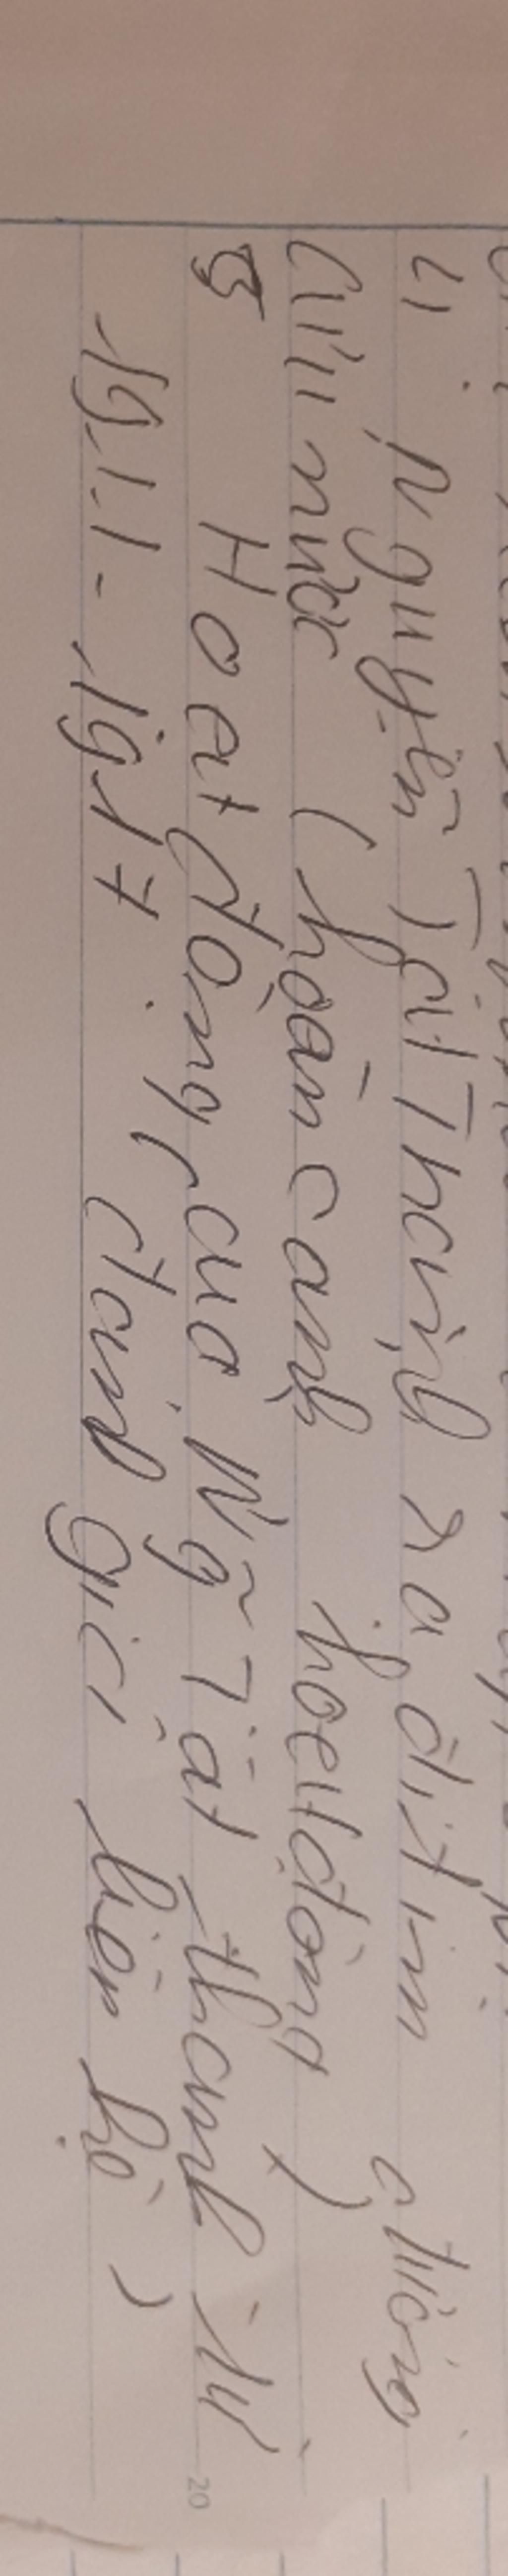 4, Nguyễn Tất Thành ra đi tìm đường
cứu nước (hoàn cảnh hoạt động)
5 Hoạt động của Ng~ Tất thành từ
1911 - 1917. đánh giá, liên hệ)
20